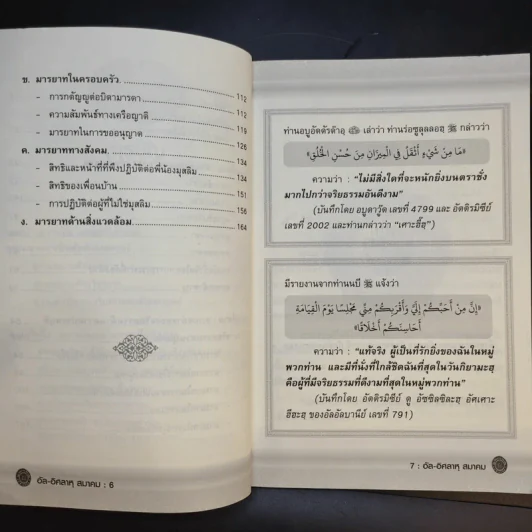 ข. มารยาทในครอบครัว. 112
- การกตัญญูต่อบิดามารดา 112
- ความสัมพันธ์ทางเครือญาติ 119
- มารยาทในการขออนุญาต 126
ค. มารยาททางสังคม. 134
- สิทธิและหน้าที่ที่พึงปฏิบัติต่อพี่น้องมุสลิม 134
- สิทธิของเพื่อนบ้าน 151
- การปฏิบัติต่อผู้ที่ไม่ใช่มุสลิม 156
ง. มารยาทด้านสิ่งแวดล้อม. 164
อัล-อิศลาหฺ สมาคม : 6
ท่านอบูอัดดัรดาอฺ เล่าว่า ท่านร่อซูลุลลอฮฺ ﷺ กล่าวว่า
«مَا مِنْ شَيْءٍ أَثْقَلُ فِي الْمِيزَانِ مِنْ حُسْنِ الْخُلُقِ»
ความว่า : “ไม่มีสิ่งใดที่จะหนักยิ่งบนตราชั่ง
มากไปกว่าจริยธรรมอันดีงาม”
(บันทึกโดย อบูดาวู้ด เลขที่ 4799 และ อัตติรมิซีย์
เลขที่ 2002 และท่านกล่าวว่า “เศาะฮี้ฮฺ”)
มีรายงานจากท่านนบี ﷺ แจ้งว่า
«إِنَّ مِنْ أَحَبِّكُمْ إِلَيَّ وَأَقْرَبِكُمْ مِنِّي مَجْلِسًا يَوْمَ الْقِيَامَةِ
أَحَاسِنَكُمْ أَخْلَاقًا»
ความว่า : “แท้จริง ผู้เป็นที่รักยิ่งของฉันในหมู่
พวกท่าน และมีที่นั่งที่ใกล้ชิดฉันที่สุดในวันกิยามะฮฺ
คือผู้ที่มีจริยธรรมที่ดีงามที่สุดในหมู่พวกท่าน”
(บันทึกโดย อัตติรมิซีย์ ดู อัซซิลซิละฮฺ อัศเศาะ
ฮีฮะฮฺ ของอัลอัลบานีย์ เลขที่ 791)
7 : อัล-อิศลาหฺ สมาคม